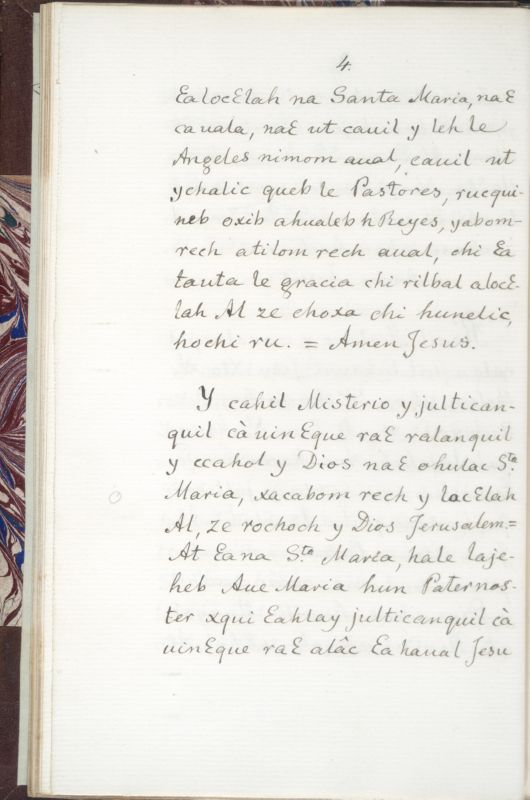 4.
Ealocɛlah na Santa Maria, naɛ
ca uala, naɛ ut cauil y leh le
Angeles nimom aual, cauil ut
ychalic queb le Pastores, rucqui-
neb oxib ahualeb h Reyes, yabom-
rech atilom rech aual, chi Ea
tauta le gracia chi rilbal alocɛ-
lah Al ze choxa chi hunelic,
hochi ru. = Amen Jesus.
Y cahil Misterio y jultican-
quil cà uinɛque raɛ ralanquil
y ccahol y Dios naɛ ohulac Sta.
Maria, xacabom rech y locɛlah
Al, ze rochoch y Dios Jerusalem.=
At Eana Sta. Maria, hale laje-
heb Aue Maria hun Paternos-
ter xqui Eahlay julticanquil cà
uinɛque raɛ alâc Ea haual Jesu